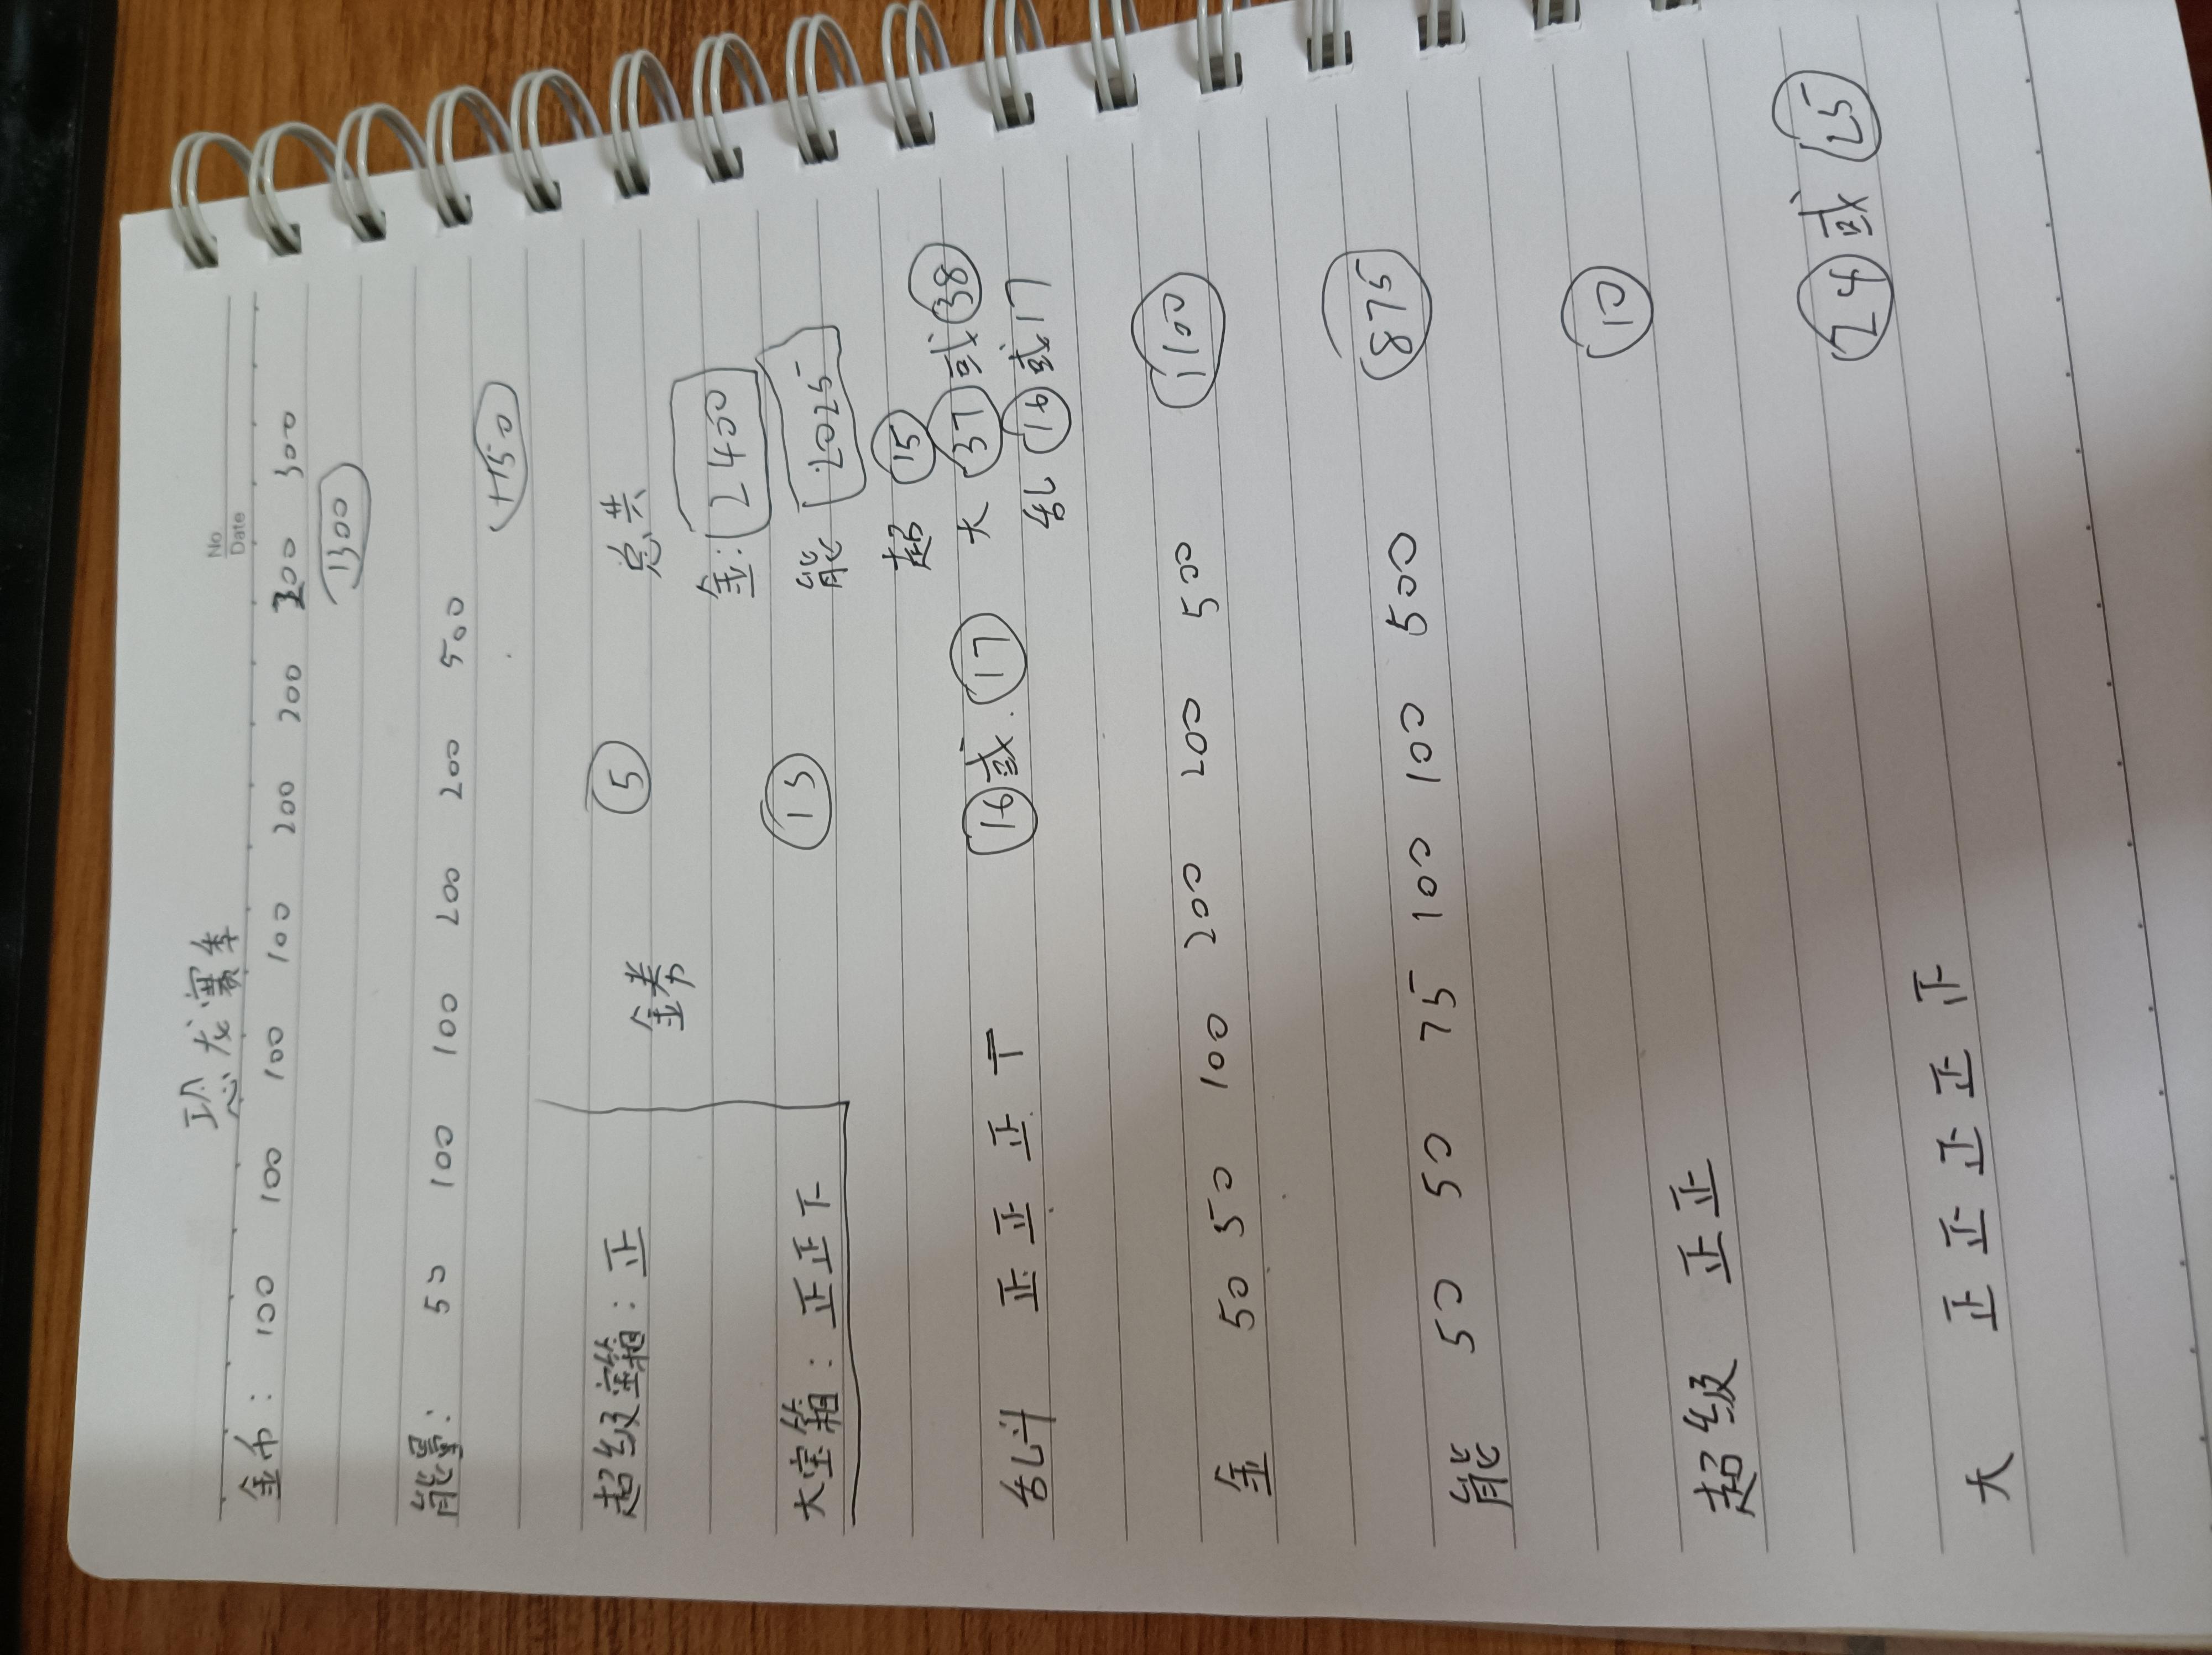 No
Date
恐龙赛车
金币：100 100 100 100 200 200 300 300
1300
能量：50 100 100 200 200 500
1150
超级宝箱：正 5
金券
大宝箱：正正下 13
总共
金：2400
能 2025
超 15
大 37或38
乱 16或17
乱斗 正 正 正 丅 16或17
金 50 50 100 200 200 500 1100
能 50 50 75 100 100 500 875
超级 正正 10
大 正 正 正 正 24或25